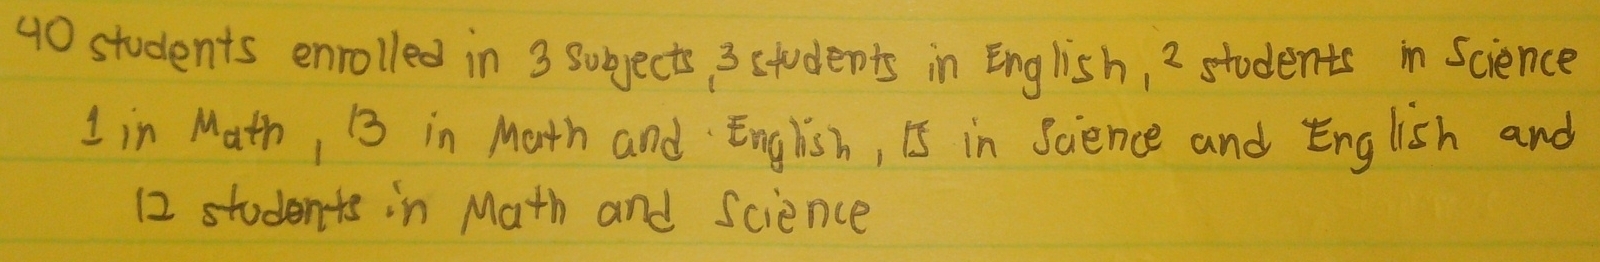 40 students enrolled in 3 subjects, 3 students in English, 2 students in Science
1 in Math, 13 in Math and English, 15 in Science and English and
12 students in Math and Science